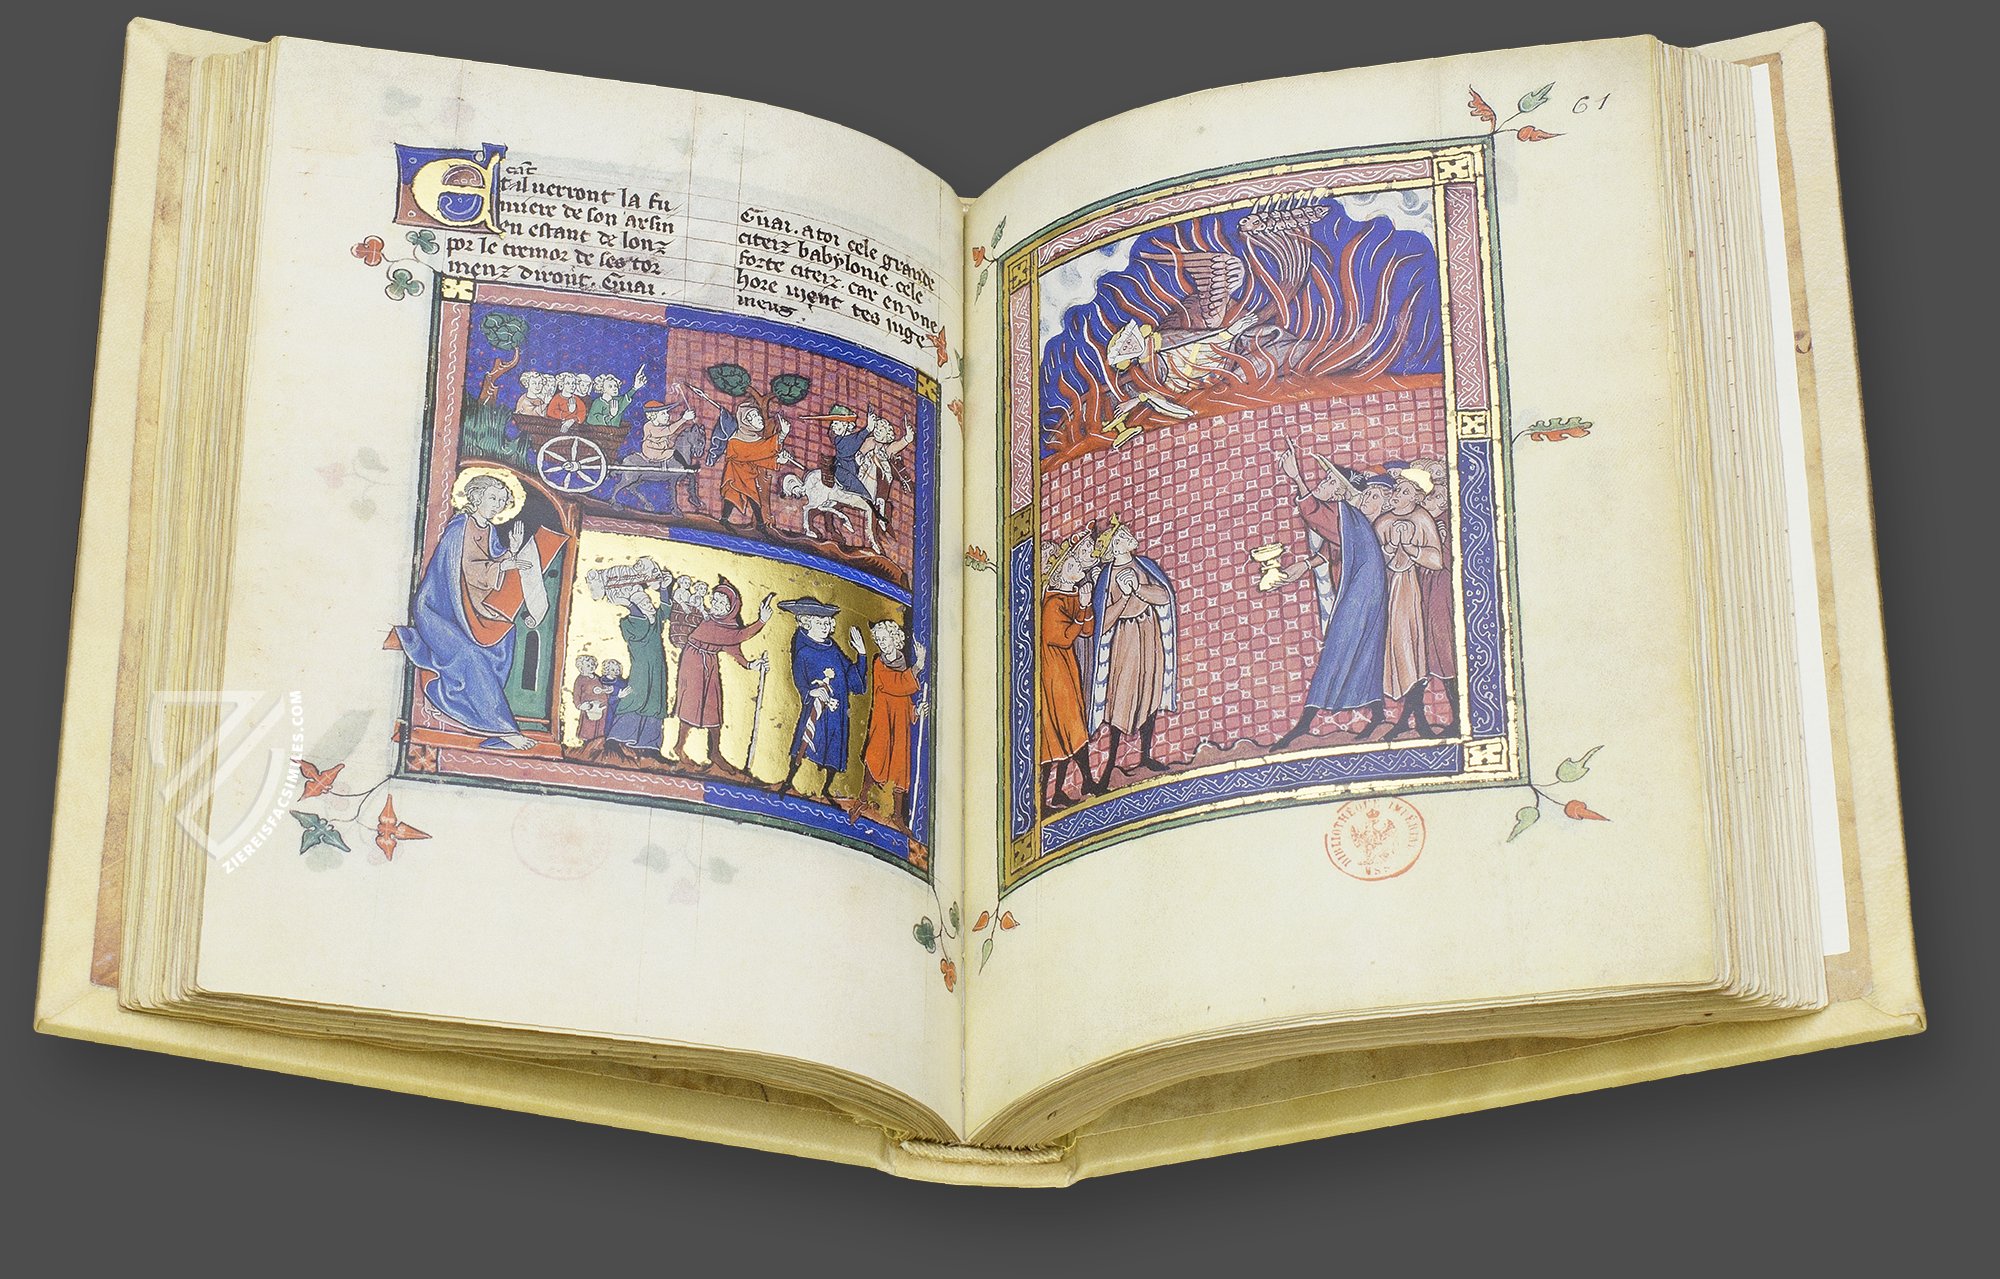 E cāt
tal uerront la fu
miere de son arsin
en estant de lonz
por le cremor de ses tor
menz diront. Guai.
Guai. a toi cele grande
citeiz babylonie cele
forte citeiz. car en vne
hore uient tes juge
menz.
61
BIBLIOTHEQUE IMPERIALE
MSS
ZIEREISFACSIMILES.COM